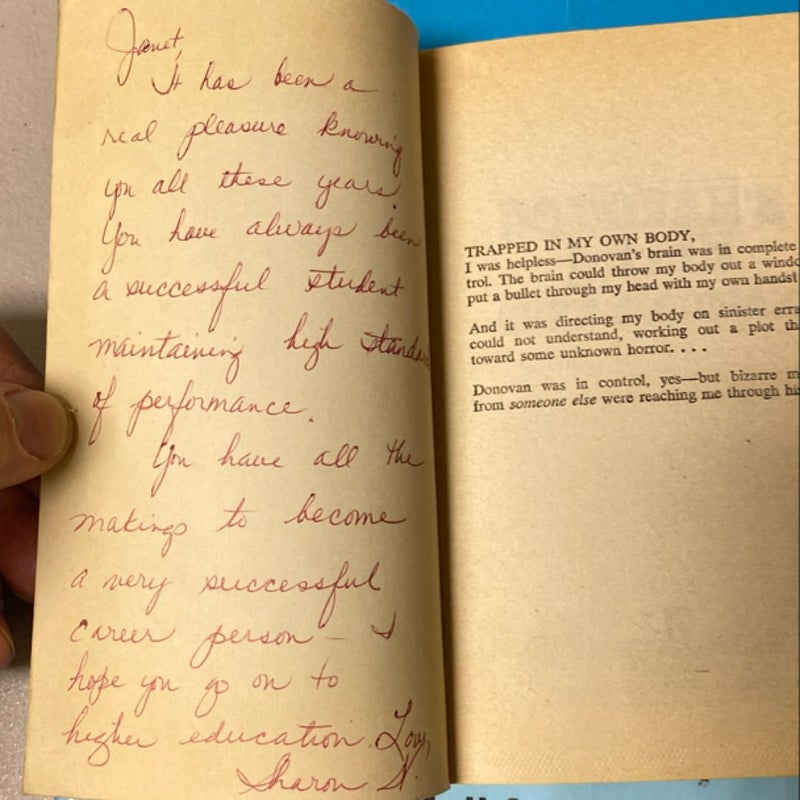 Janet,
It has been a
real pleasure knowing
you all these years.
You have always been
a successful student
maintaining high standards
of performance.
You have all the
makings to become
a very successful
career person – I
hope you go on to
higher education. Love,
Sharon N.
TRAPPED IN MY OWN BODY,
I was helpless—Donovan's brain was in complete
trol. The brain could throw my body out a windo
put a bullet through my head with my own hands!
And it was directing my body on sinister erra
could not understand, working out a plot th
toward some unknown horror. . . .
Donovan was in control, yes—but bizarre m
from someone else were reaching me through his